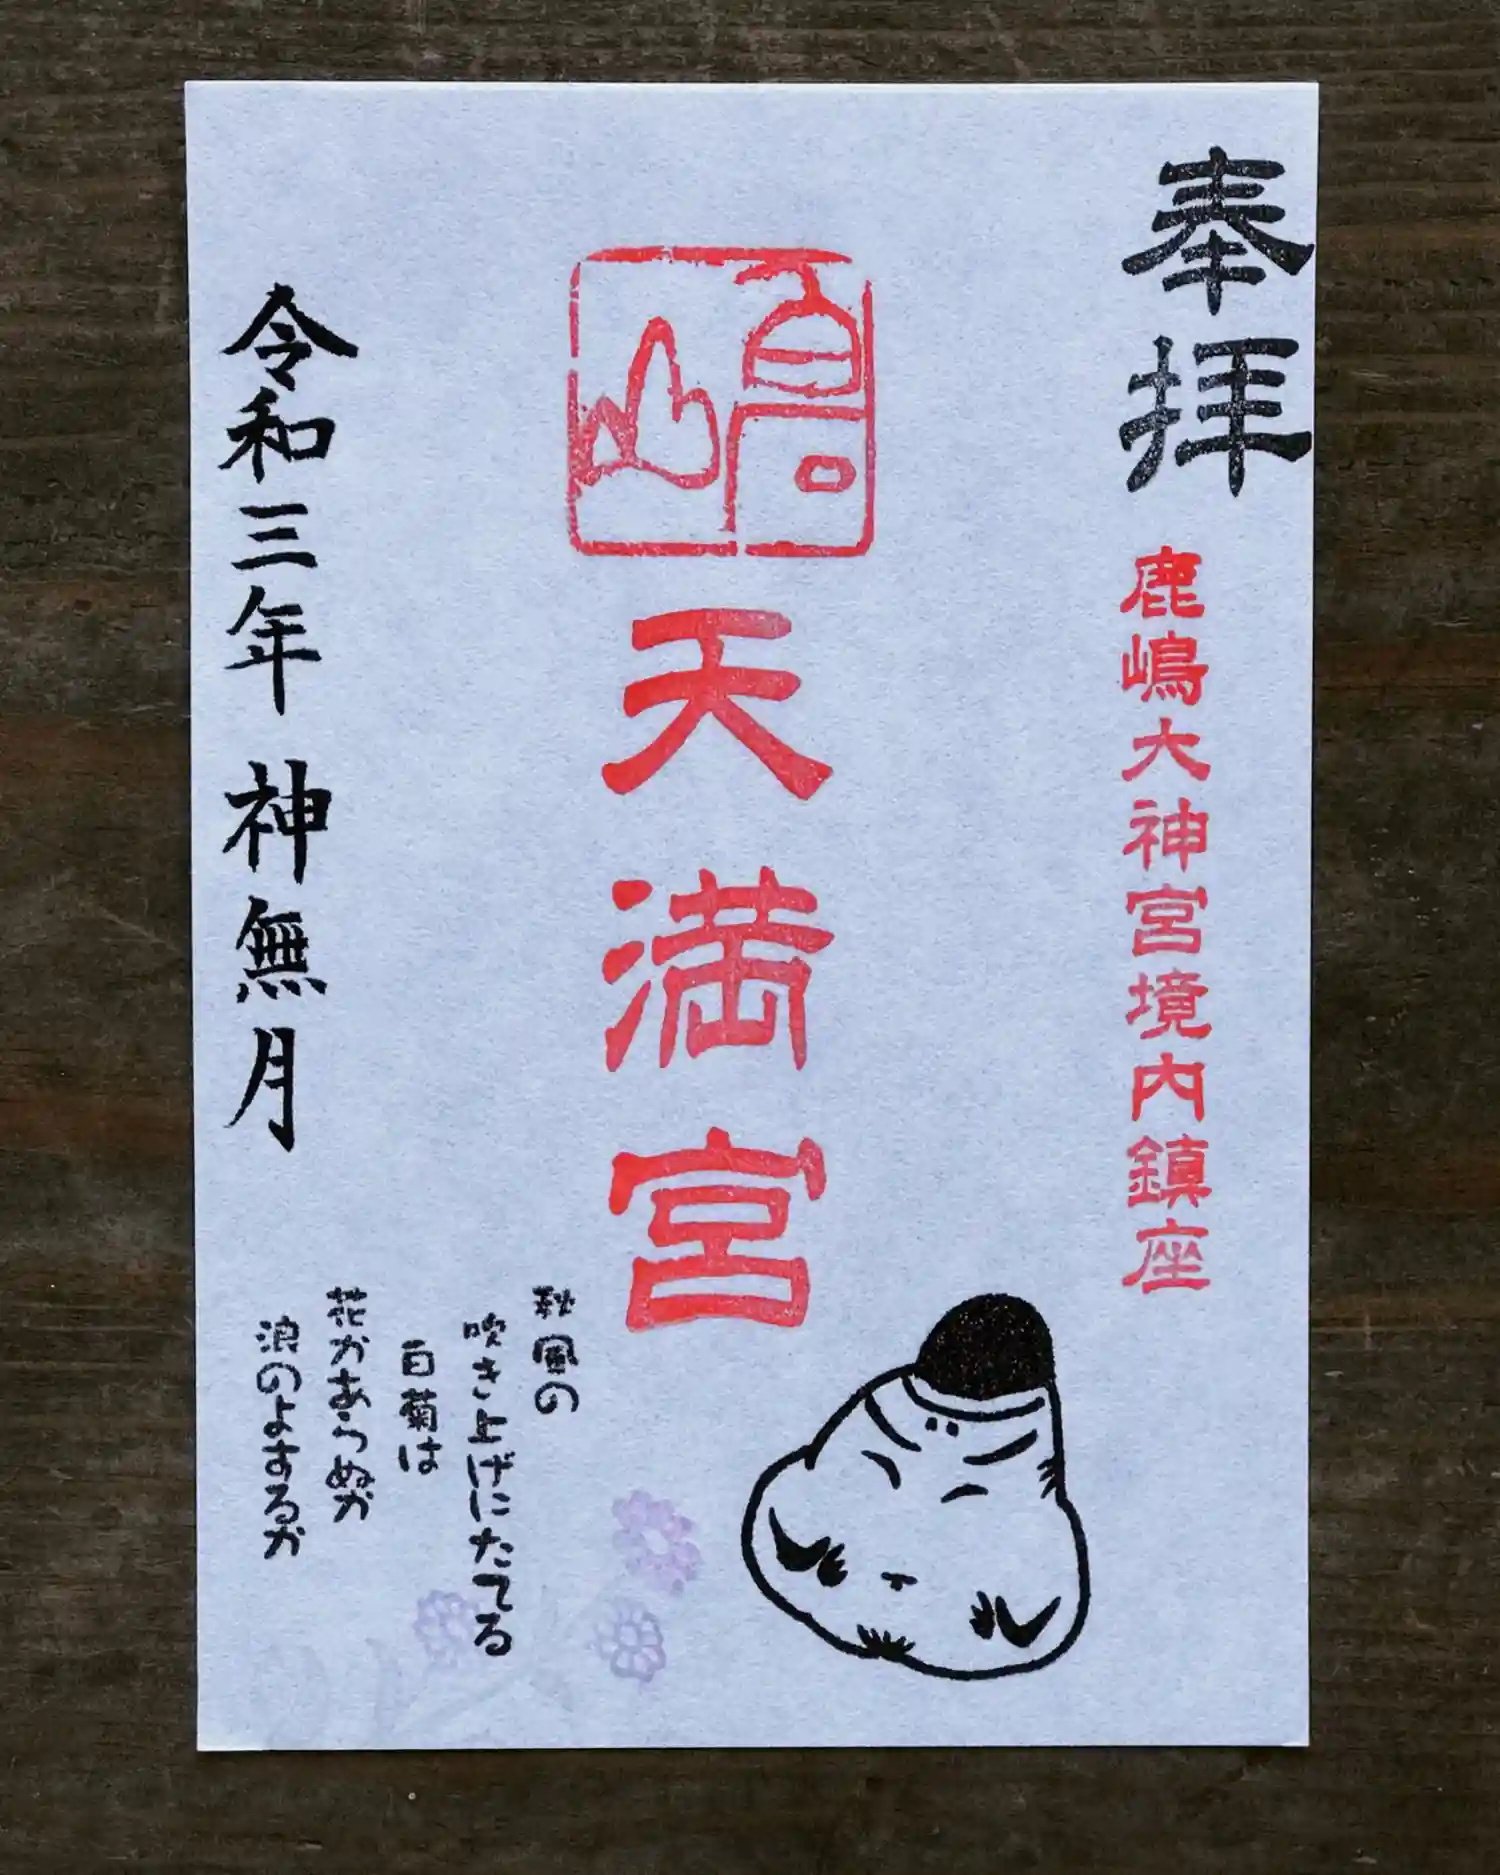 奉拝
鹿嶋大神宮境内鎮座
嶋
天満宮
秋風の
吹き上げにたてる
白菊は
花かあらぬか
浪のよするか
令和三年 神無月